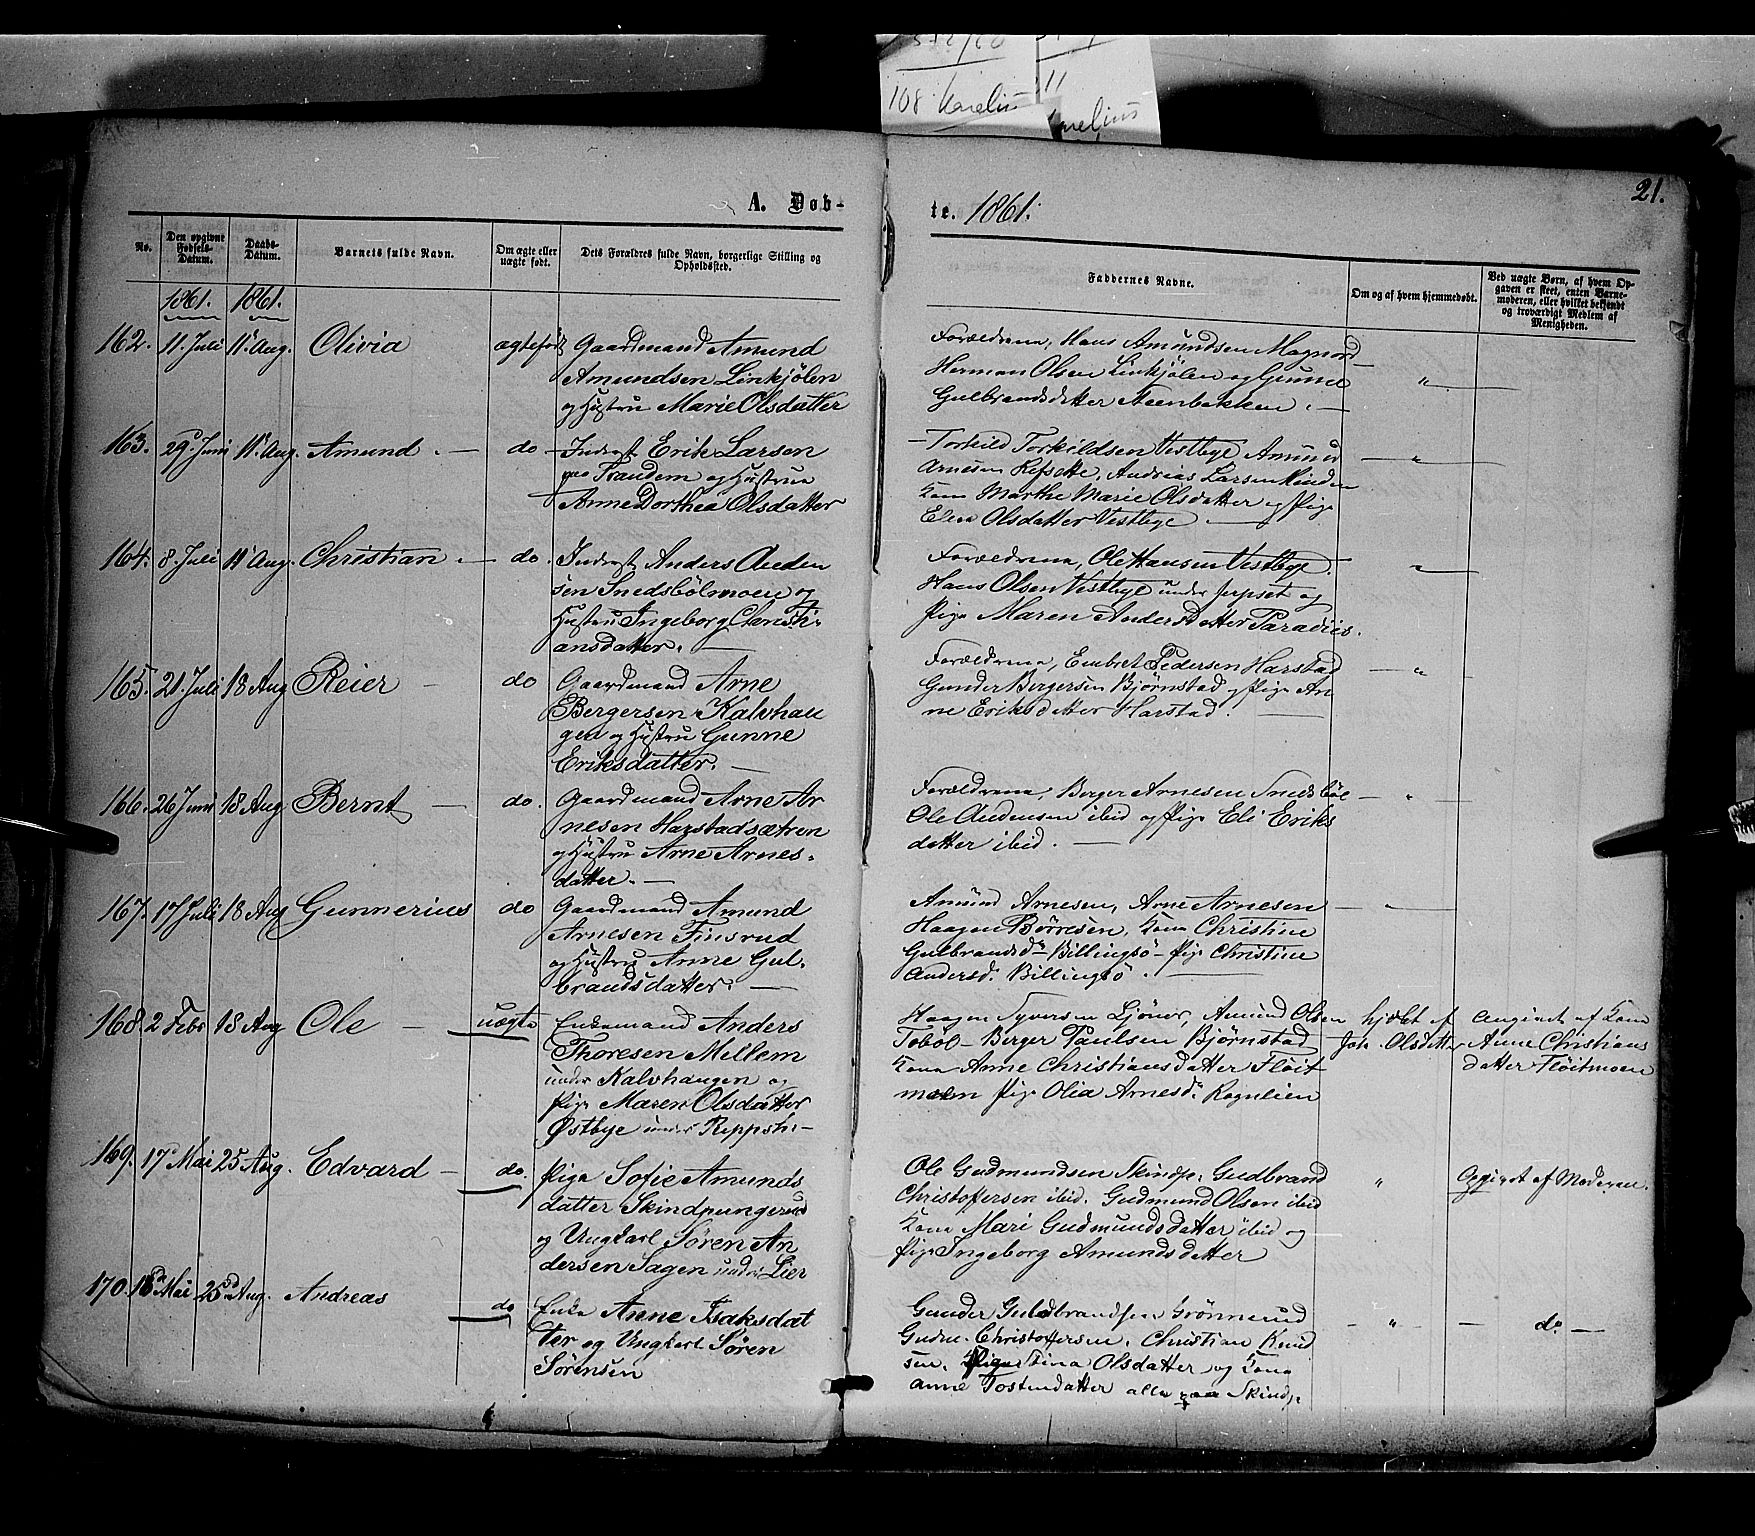 108 Karelius 11
A. Døb-
te. 1861.
21.
No.
Den opgivne Fødsels-Datum.
Daabs-Datum.
Barnets fulde Navn.
Om ægte eller uægte født.
Dets Forældres fulde Navn, borgerlige Stilling og Opholdssted.
Faddernes Navne.
Om og af hvem hjemmedøbt.
Ved uægte Børn, af hvem Opgaven er skeet, enten Barnemoderen, eller hvilket bekjendt og troværdigt Medlem af Menigheden.
1861. 1861.
162. 11. Juli 11 Aug. Olivia ægtefødt Gaardmand Amund
Amundsen Linkjølen
og Hustru Marie Olsdatter
Forældrene, Hans Amundsen Magnor
Herman Olsen Linkjølen og Gunne
Gulbrandsdatter Steenbakken. — "
163. 29. Juni 11 Aug. Amund. — do — Inderst Erik Larsen
paa Traudem og Hustru
Anne Dorthea Olsdatter
Torkild Torkildsen Vestbye Amund
Arnesen Refsette, Andreas Larsen
Kone Marthe Marie Olsdatter og Pige
Elen Olsdatter Vestbye — "
164. 8. Juli 11 Aug. Christian. — do. Inderst Anders Auden
sen Snedsbølmoen og
Hustru Ingeborg Christi-
ansdatter. —
Forældrene, Ole Hansen Vestbye.
Hans Olsen Vestbye under Jerpset og
Pige Maren Andersdatter Paradiis. "
165. 21. Juli 18 Aug Reier — do Gaardmand Arne
Bergersen Kalvhau
gen og Hustru Gunne
Eriksdatter. —
Forældrene, Embret Pedersen Harstad
Gunder Bergersen Bjørnstad og Pige An
ne Eriksdatter Harstad. — "
166. 26 Juni 18 Aug Bernt — do. Gaardmand Arne Ar
nesen Harstadsætren
og Hustru Arne Arnes-
datter. —
Forældrene, Berger Arnesen Snedsbøl — " —
Ole Audensen ibid og Pige Eli Eriks
datter ibid. —
167. 17 Juli 18 Aug Gunnerius do Gaardmand Amund
Arnesen Finsrud
og Hustru Anne Gul-
brandsdatter. —
Amund Arnesen, Arne Arnesen — " —
Haagen Børresen, Kone Christine
Gulbrandsdr Billingsø — Pige Christine
Andersd. Billingsø. —
168. 2 Febr 18 Aug Ole — uægte Enkemand Anders
Thoresen Mellem
under Kalvhaugen og
Pige Maren Olsdatter
Østbye under
Haagen Syversen Ljøner, Amund Olsen
Tobøl — Berger Paulsen Bjørnstad
Kone Anne Christiansdatter Fløit
moen Pige Olia Arnesd.
hjdøbt af
Joh. Olsdatter
angivet af Kone
Anne Christians
datter Fløitmoen
169. 17 Mai 25 Aug. Edvard — do. Pige Sofie Amunds
datter Skindpungerud
og Ungkarl Søren An
dersen Sagen under Lier
Ole Gudmundsen Skindp. Gudbrand
Christoffersen ibid. Gudmund Olsen ibid
Kone Mari Gudmundsdatter ibid og
Pige Ingeborg Amundsdatter
" Opgivet af Moderen.
170. 16de Mai 25de Aug. Andreas do Enke Anne Isaksdat
ter og Ungkarl Søren
Sørensen
Gunder Guldbrandsen Grønnerud
Gudm. Christoffersen. Christian Knud
sen. Pige Stina Olsdatter og Kone
Anne Tostensdatter alle paa Skindp.
— " — do —